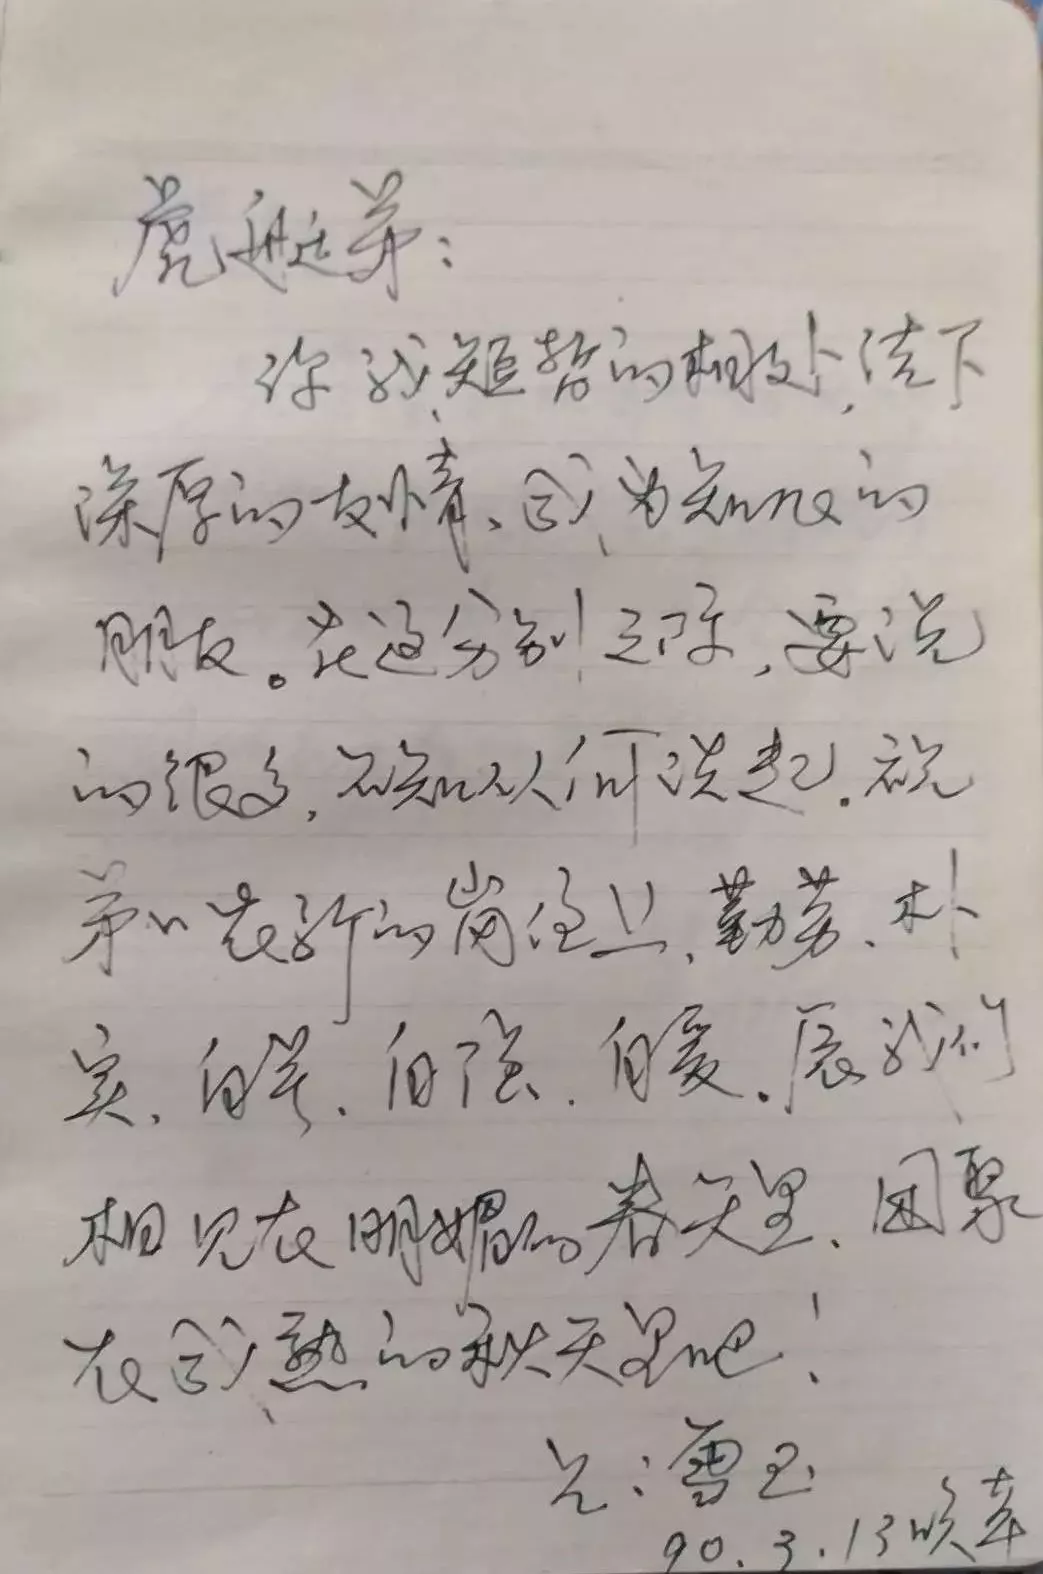 虎廷弟：
你我短暂的相处，结下
深厚的友情、成为知心的
朋友。在这分别之际，要说
的很多，不知从何谈起。祝
弟在新的岗位上、勤劳、朴
实、自尊、自强、自爱。愿我们
相见在明媚的春天里、团聚
在成熟的秋天里吧！
兄：雪玉
90.3.13